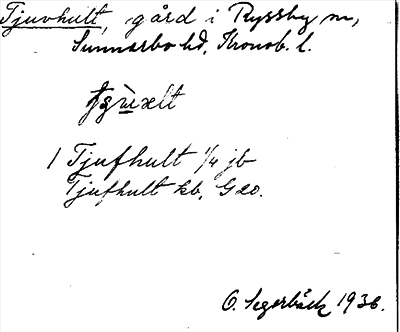 Tjuvhult, gård i Ryssby sn,
Sunnerbo hd, Kronob. l.
1 Tjufhult 1/4 jb
Tjufhult kb, G 20.
O. Segerbäck 1936.